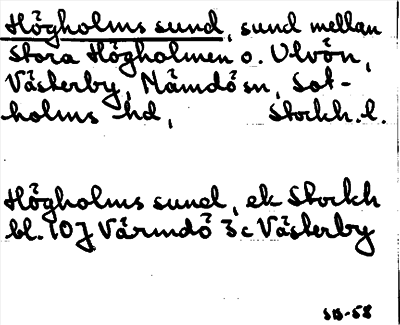 Högholms sund, sund mellan
Stora Högholmen o. Ulvön,
Västerby, Nämdö sn, Sot-
holms hd, Stockh. l.
Högholms sund, ek Stockh
bl. 10J Värmdö 3c Västerby
SB-58